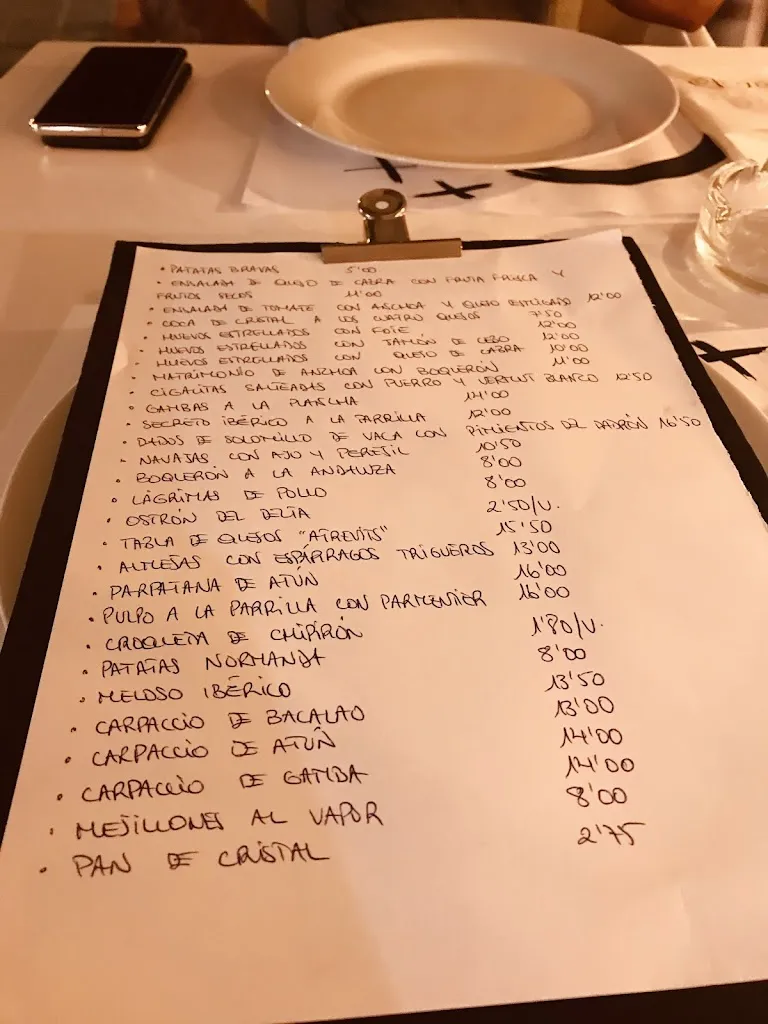 • PATATAS BRAVAS 5'00
• ENSALADA DE QUESO DE CABRA CON FRUTA FRESCA Y
FRUTOS SECOS 11'00
• ENSALADA DE TOMATE CON ANCHOA Y QUESO ESTILIZADO 12'00
• COCA DE CRISTAL A LOS CUATRO QUESOS 7'50
• HUEVOS ESTRELLADOS CON FOIE 12'00
• HUEVOS ESTRELLADOS CON JAMÓN DE CEBO 12'00
• HUEVOS ESTRELLADOS CON QUESO DE CABRA 10'00
• MATRIMONIO DE ANCHOA CON BOQUERÓN 11'00
• CIGALITAS SALTEADAS CON PUERRO Y VERMUT BLANCO 12'50
• GAMBAS A LA PLANCHA 14'00
• SECRETO IBÉRICO A LA PARRILLA 12'00
• DADOS DE SOLOMILLO DE VACA CON PIMIENTOS DEL PADRÓN 16'50
• NAVAJAS CON AJO Y PEREJIL 10'50
• BOQUERÓN A LA ANDALUZA 8'00
• LÁGRIMAS DE POLLO 8'00
• OSTRÓN DEL DELTA 2'50/U.
• TABLA DE QUESOS "ATREVITS" 15'50
• ALMEJAS CON ESPÁRRAGOS TRIGUEROS 13'00
• PARPATANA DE ATÚN 16'00
• PULPO A LA PARRILLA CON PARMENTIER 16'00
• CROQUETA DE CHIPIRÓN 1'80/U.
• PATATAS NORMANDA 8'00
• MELOSO IBÉRICO 13'50
• CARPACCIO DE BACALAO 13'00
• CARPACCIO DE ATÚN 14'00
• CARPACCIO DE GAMBA 14'00
• MEJILLONES AL VAPOR 8'00
• PAN DE CRISTAL 2'75